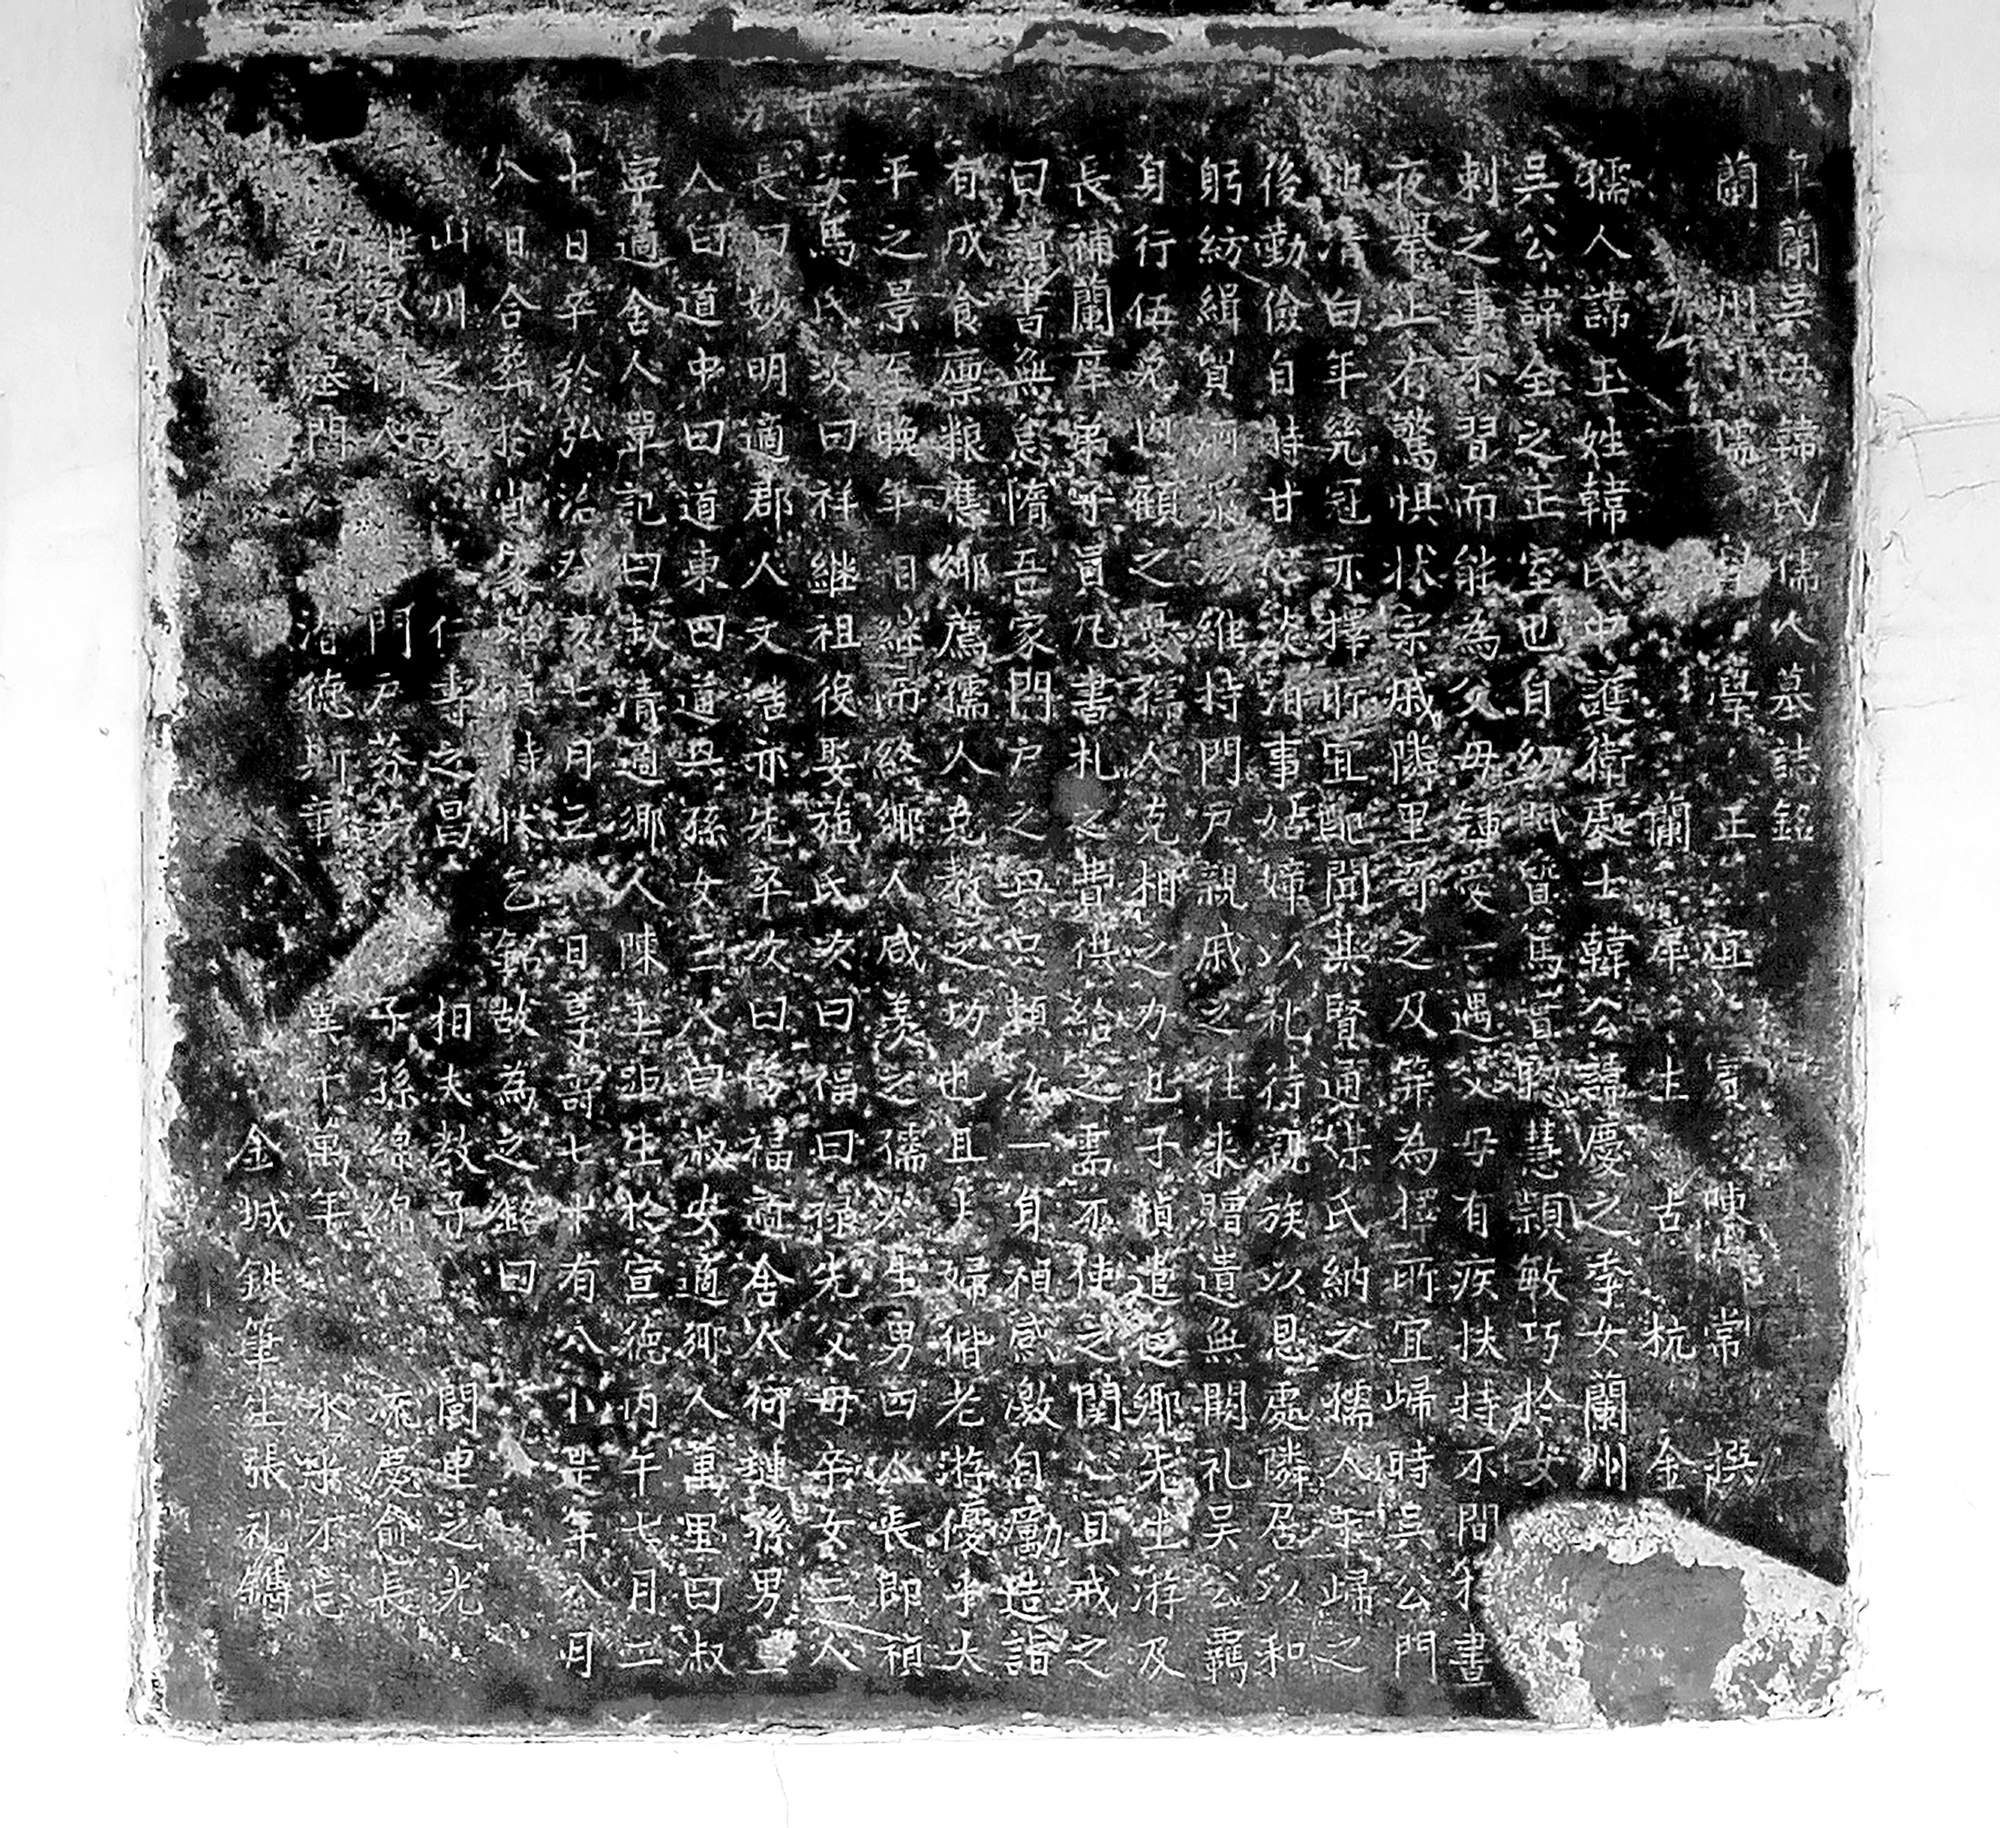 蘭吳母韓氏孺人墓誌銘
蘭州儒學學正宜賓陳常撰
蘭庠生古杭金
孺人諱玉姓韓氏中護衛處士韓公諱慶之季女蘭州
吳公諱全之正室也自幼賦質篤實聰慧穎敏巧於女
刺之事不習而能為父母鍾愛一遇父母有疾扶持不間於晝
夜舉止有驚惧狀宗戚隣里哥之及笄為擇所宜歸時吳公門
地清白年兊冠亦擇所宜配聞其賢通媒氏納之孺人于歸之
後勤儉自持甘淡泊事姑嫜以礼待親族以恩處隣居以和
躬紡緝貿維持門戶親戚之往来贈遺無闕礼吳公羈
身行伍免內顧之憂孺人克相之力也子禎遣從鄉先生游及
長補蘭庠弟子員凡書札之費供給之需不使之闕心且戒之
曰讀書無怠惰吾家門戶之興只頼汝一身禎感激自勵造詣
有成食廪粮應鄉薦孺人克教之功也且夫婦偕老游優乎太
平之景至晚年相継而終鄉人咸羨之孺人生男四人長即禎
娶馬氏次曰祥継祖後娶施氏次曰福曰禄先父母卒女三人
長曰妙明適郡人文浩亦先卒次曰福適舍人荷璉孫男三
人曰道中曰道東曰道興孫女三人曰淑安適鄉人萬里曰淑
寧適舍人單記曰淑清適鄉人陳玉孺生於宣德丙午七月二
七日卒於弘治癸亥七月日享壽七十有八卜是年八月
八日合葬於時乞銘故為之銘曰
山川之仁壽之昌相夫教子閫之光
門戶芬芳子孫綿綿流慶俞長
門德斯十萬年永永不忘
金城鉄筆生張礼鐫